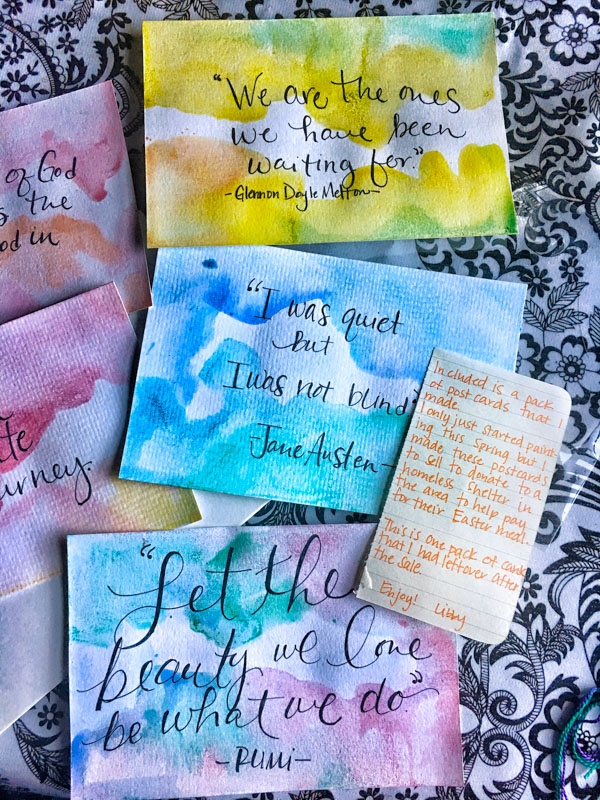 "We are the ones
we have been
waiting for."
-Glennon Doyle Melton-
of God
s the
od in
"I was quiet
but
I was not blind"
-Jane Austen-
urney.
Included is a pack
of postcards that I
made.
I only just started paint-
ing this spring but I
made these postcards
to sell to donate to a
homeless shelter in
the area to help pay
for their Easter meal.
This is one pack of cards
that I had leftover after
the sale.
Enjoy! Libby
"Let the
beauty we love
be what we do"
-RUMI-